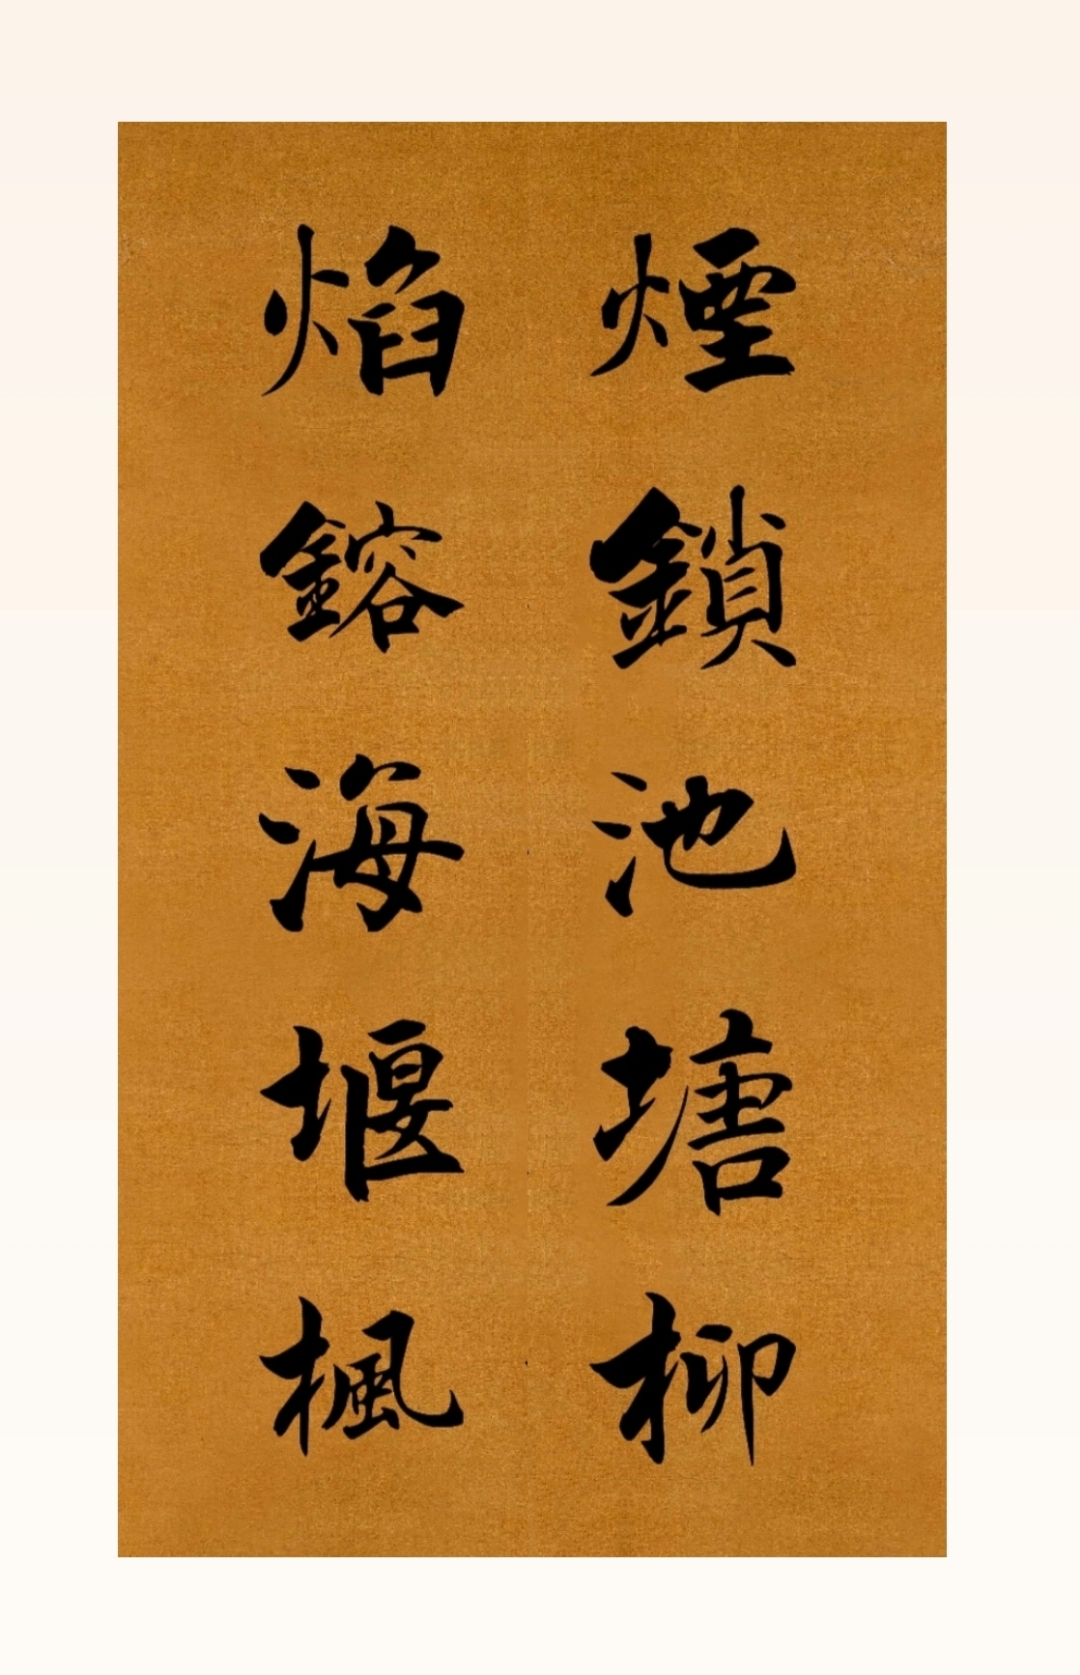 煙鎖池塘柳
焰鎔海堰楓